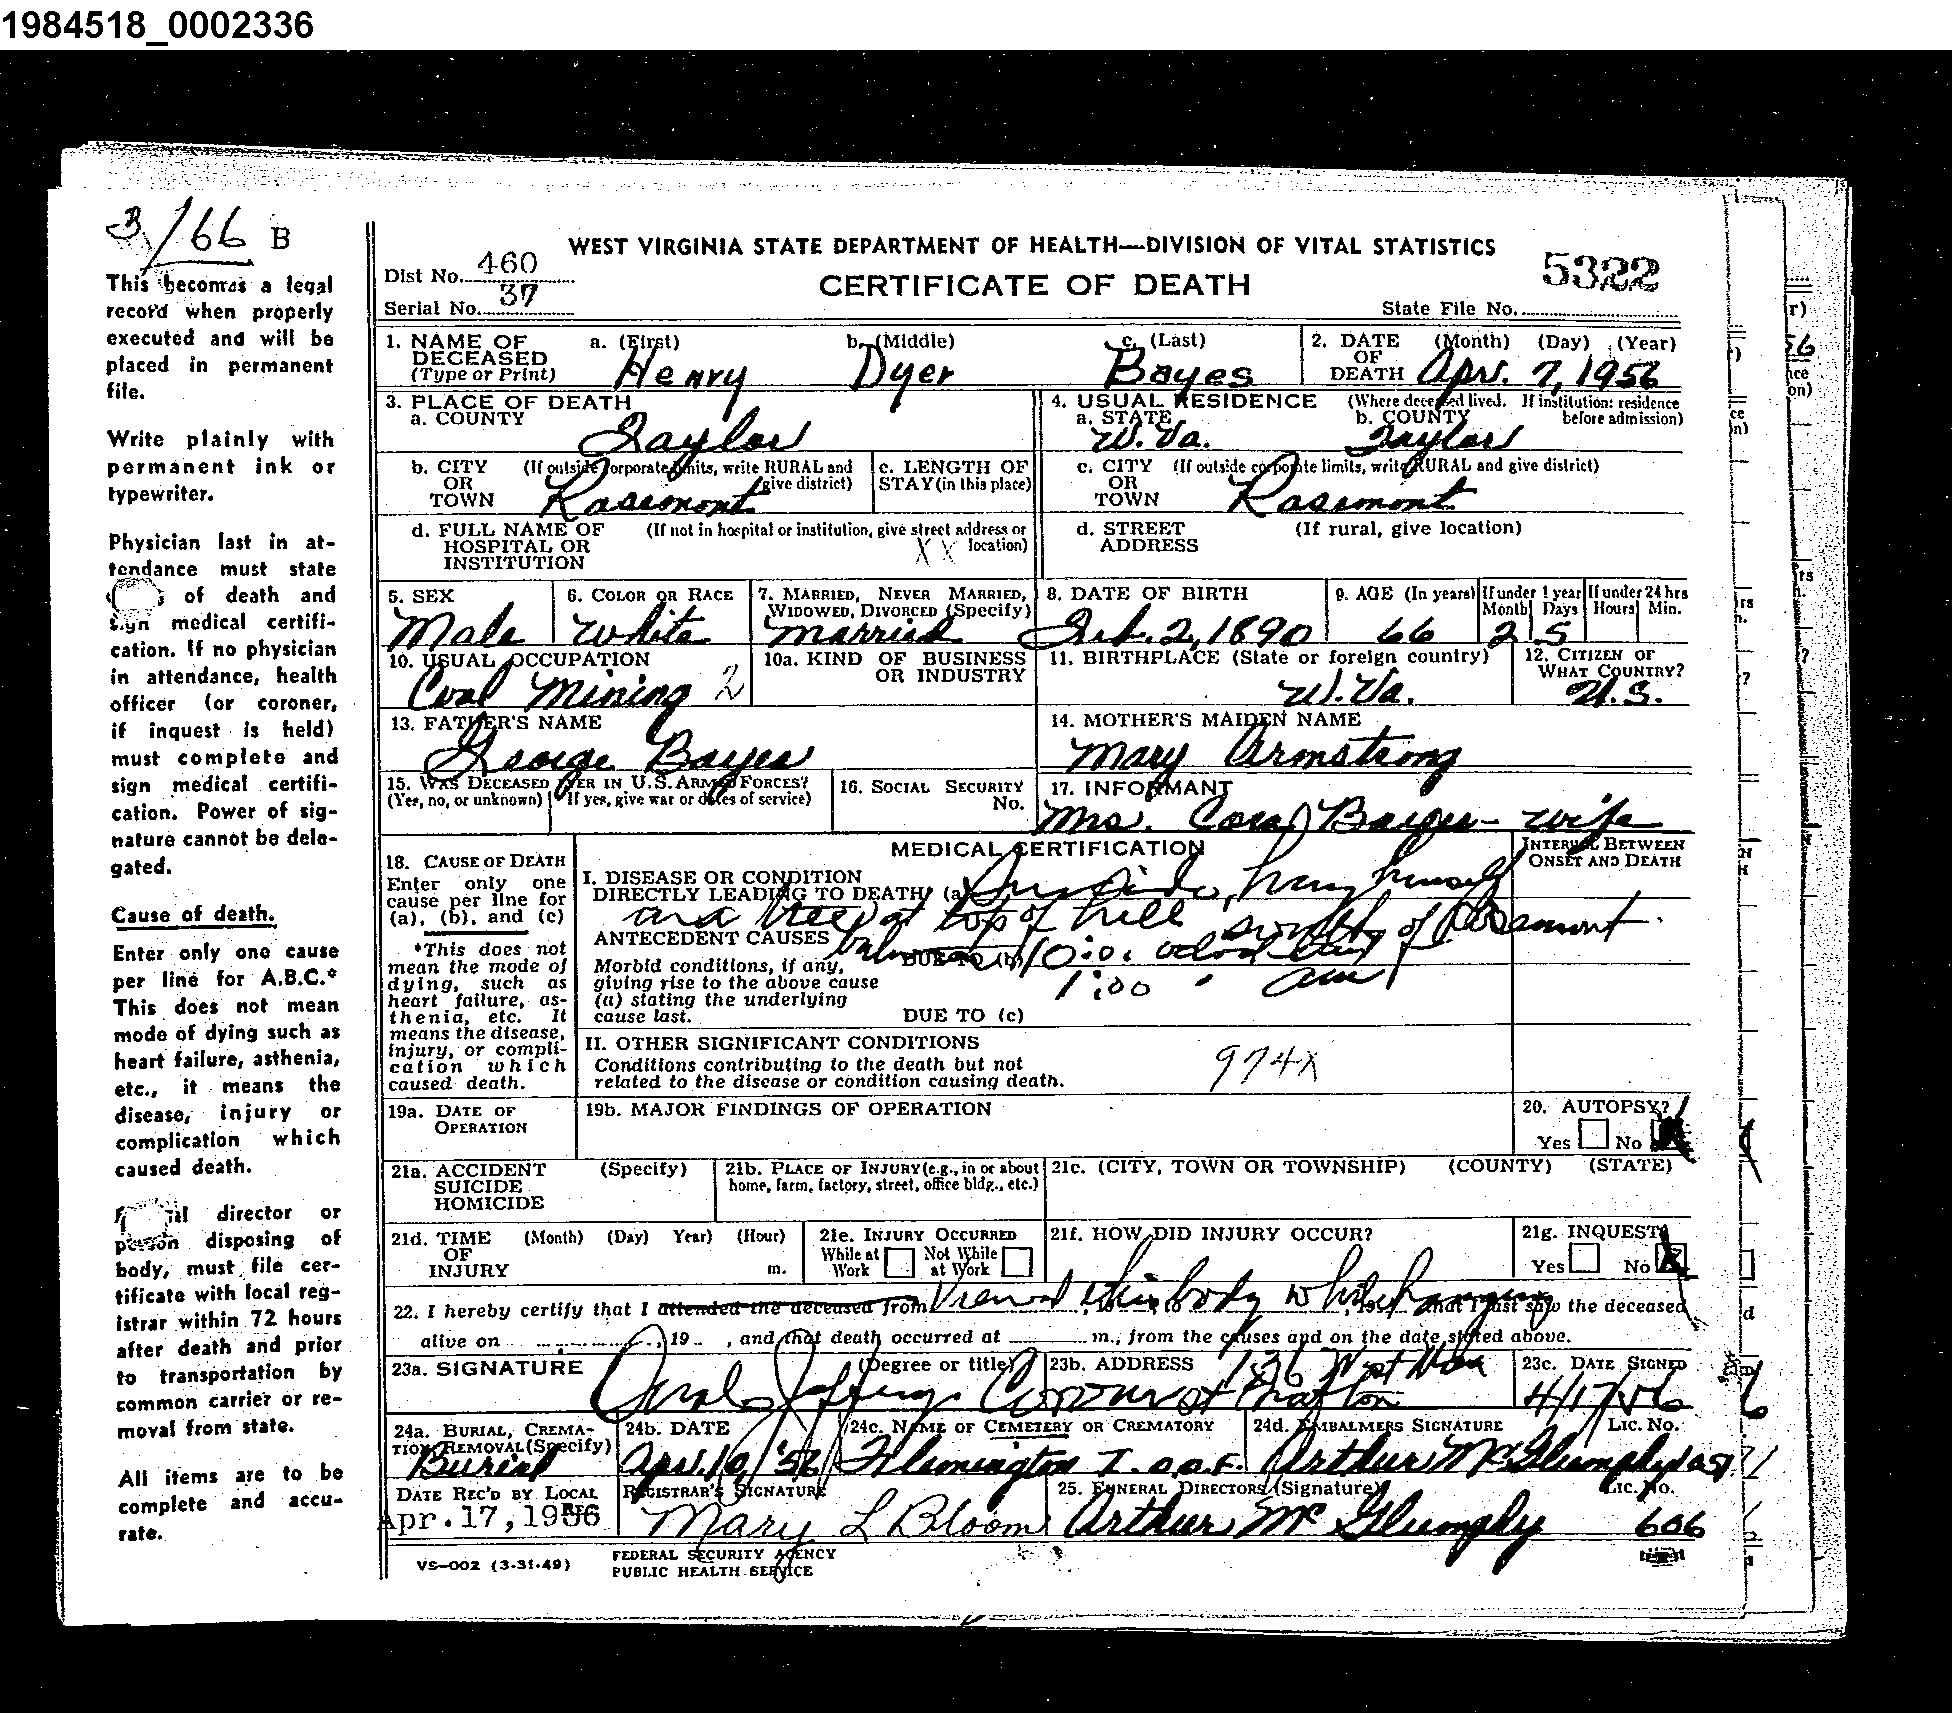 1984518_0002336
3/66 B
This becomes a legal
record when properly
executed and will be
placed in permanent
file.
Write plainly with
permanent ink or
typewriter.
Physician last in at-
tendance must state
of death and
sign medical certifi-
cation. If no physician
in attendance, health
officer (or coroner,
if inquest is held)
must complete and
sign medical certifi-
cation. Power of sig-
nature cannot be dele-
gated.
Cause of death.
Enter only one cause
per line for A.B.C.*
This does not mean
mode of dying such as
heart failure, asthenia,
etc., it means the
disease, injury or
complication which
caused death.
director or
person disposing of
body, must file cer-
tificate with local reg-
istrar within 72 hours
after death and prior
to transportation by
common carrier or re-
moval from state.
All items are to be
complete and accu-
rate.
WEST VIRGINIA STATE DEPARTMENT OF HEALTH—DIVISION OF VITAL STATISTICS
Dist No. 460
CERTIFICATE OF DEATH
5322
Serial No. 37
State File No.
1. NAME OF DECEASED (Type or Print) a. (First) Henry b. (Middle) Dyer c. (Last) Bayes
2. DATE OF DEATH (Month) (Day) (Year) Apr. 7, 1956
3. PLACE OF DEATH
a. COUNTY Taylor
4. USUAL RESIDENCE (Where deceased lived. If institution: residence before admission)
a. STATE W. Va. b. COUNTY Taylor
b. CITY OR TOWN (If outside corporate limits, write RURAL and give district) Rosemont
c. LENGTH OF STAY (in this place)
c. CITY OR TOWN (If outside corporate limits, write RURAL and give district) Rosemont
d. FULL NAME OF HOSPITAL OR INSTITUTION (If not in hospital or institution, give street address or location) X X
d. STREET ADDRESS (If rural, give location)
5. SEX Male
6. COLOR OR RACE White
7. MARRIED, NEVER MARRIED, WIDOWED, DIVORCED (Specify) Married
8. DATE OF BIRTH Feb. 2, 1890
9. AGE (In years) 66 If under 1 year Month 2 Days 5 If under 24 hrs Hours Min.
10. USUAL OCCUPATION Coal Mining 2
10a. KIND OF BUSINESS OR INDUSTRY
11. BIRTHPLACE (State or foreign country) W. Va.
12. CITIZEN OF WHAT COUNTRY? U.S.
13. FATHER'S NAME George Bayes
14. MOTHER'S MAIDEN NAME Mary Armstrong
15. WAS DECEASED EVER IN U.S. ARMED FORCES? (Yes, no, or unknown) If yes, give war or dates of service)
16. SOCIAL SECURITY No.
17. INFORMANT Mrs. Bayes - wife
18. CAUSE OF DEATH
Enter only one
cause per line for
(a), (b), and (c)
*This does not
mean the mode of
dying, such as
heart failure, as-
thenia, etc. It
means the disease,
injury, or compli-
cation which
caused death.
MEDICAL CERTIFICATION
INTERVAL BETWEEN ONSET AND DEATH
I. DISEASE OR CONDITION
DIRECTLY LEADING TO DEATH (a) Suicide, hung himself
on a tree at top of hill south of Rosemont.
ANTECEDENT CAUSES
DUE TO (b) 10:00
Morbid conditions, if any,
giving rise to the above cause
(a) stating the underlying
cause last.
1:00
DUE TO (c)
II. OTHER SIGNIFICANT CONDITIONS
Conditions contributing to the death but not
related to the disease or condition causing death.
974X
19a. DATE OF OPERATION
19b. MAJOR FINDINGS OF OPERATION
20. AUTOPSY? Yes No X
21a. ACCIDENT SUICIDE HOMICIDE (Specify)
21b. PLACE OF INJURY (e.g., in or about home, farm, factory, street, office bldg., etc.)
21c. (CITY, TOWN OR TOWNSHIP) (COUNTY) (STATE)
21d. TIME OF INJURY (Month) (Day) Year) (Hour) m.
21e. INJURY OCCURRED While at Work Not While at Work
21f. HOW DID INJURY OCCUR?
21g. INQUEST Yes No X
22. I hereby certify that I attended the deceased from Viewed this body while hanging that I last saw the deceased
alive on 19 , and that death occurred at m., from the causes and on the date stated above.
23a. SIGNATURE (Degree or title) Coroner
23b. ADDRESS 136 West Main St Grafton
23c. DATE SIGNED 4/17/56
24a. BURIAL, CREMATION, REMOVAL (Specify) Burial
24b. DATE Apr. 10, '56
24c. NAME OF CEMETERY OR CREMATORY Flemington I.O.O.F.
24d. EMBALMERS SIGNATURE Lic. No. Arthur McGlumphy
DATE REC'D BY LOCAL Apr. 17, 1956
REGISTRAR'S SIGNATURE Mary L Bloom
25. FUNERAL DIRECTORS (Signature) Arthur McGlumphy Lic. No. 606
VS-002 (3-31-49)
FEDERAL SECURITY AGENCY
PUBLIC HEALTH SERVICE